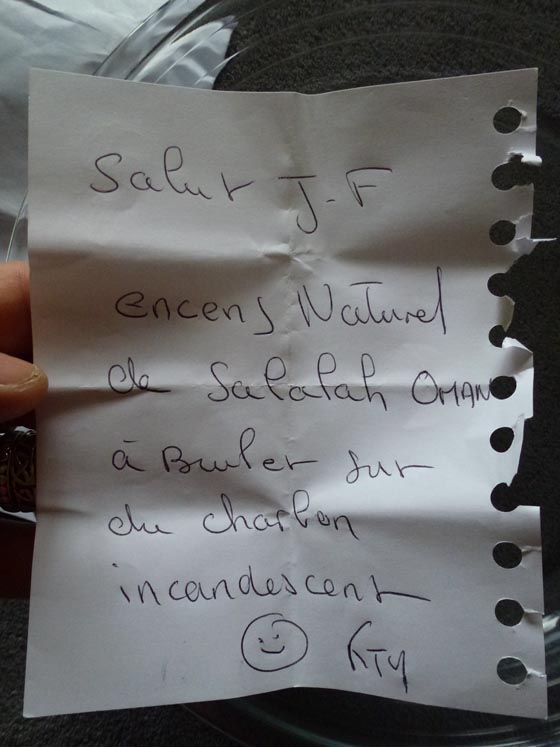 Salut J-F
encens Naturel
de Salalah OMAN
à Bruler sur
du charbon
incandescent